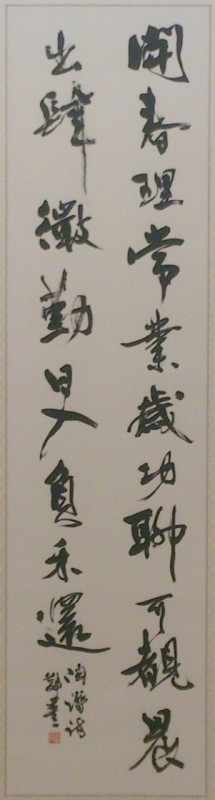 開春理常業歲功聊可觀晨
出肄微勤日入負禾還
陶潛詩